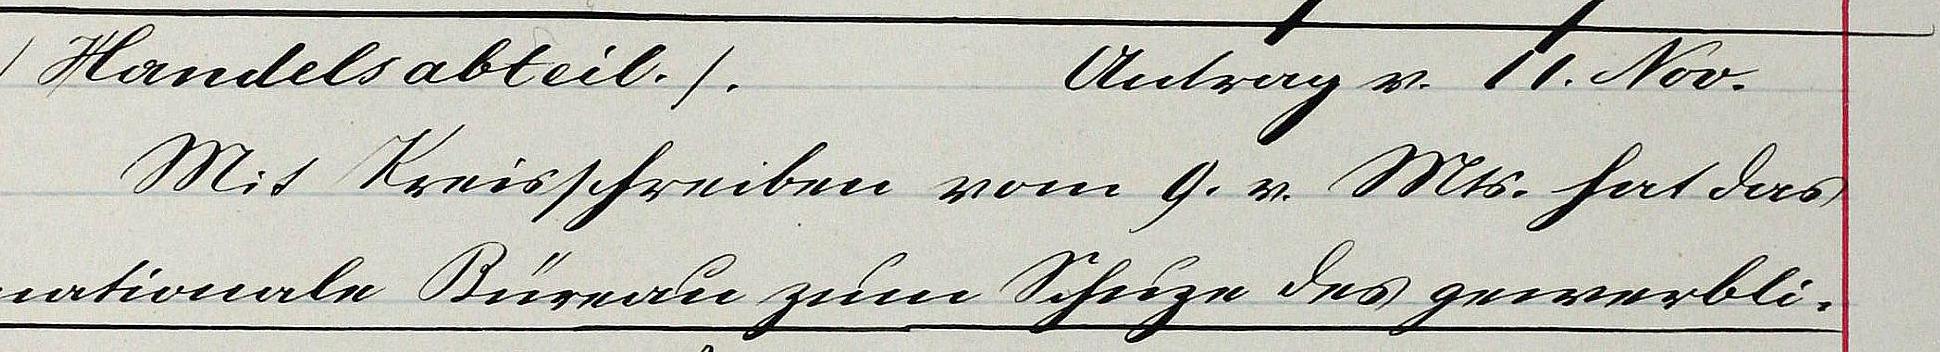 (Handelsabteil.). Antrag v. 11. Nov.
Mit Kreisschreiben vom 9. v. Mts. hat das
nationale Büreau zum Schuze des gewerbli-